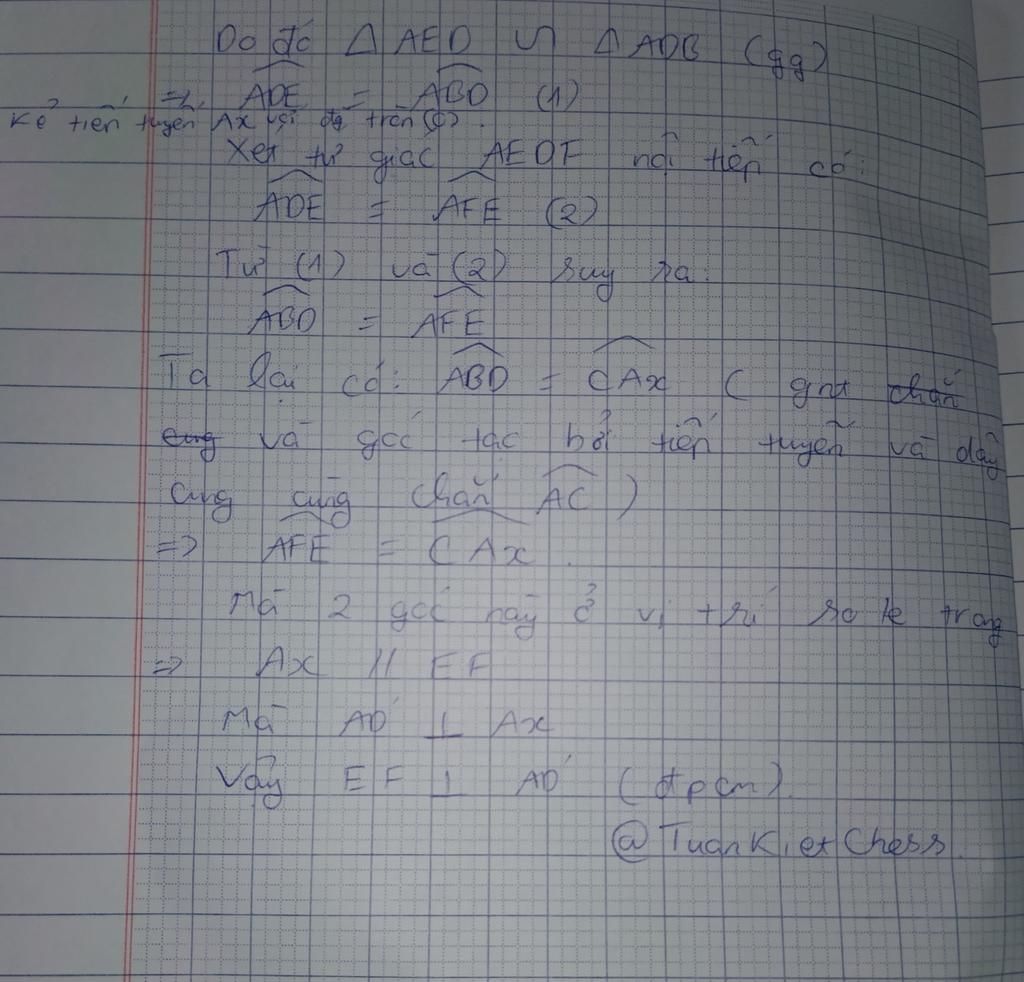 Do đó Δ AED ∽ Δ ADB (gg)
=> ADE = ABD (1)
Kẻ tiếp tuyến Ax với đg tròn (O).
Xét tứ giác AEDF nội tiếp có:
ADE = AFE (2)
Từ (1) và (2) suy ra:
ABD = AFE
Ta lại có: ABD = CAx ( gnt chắn
cung và góc tạc bởi tiếp tuyến và dây
cung cùng chắn AC )
=> AFE = CAx.
Mà 2 góc này ở vị trí so le trong
=> Ax // EF
Mà AD' ⊥ Ax
Vậy EF ⊥ AD' (đpcm).
@TuanKietChess.